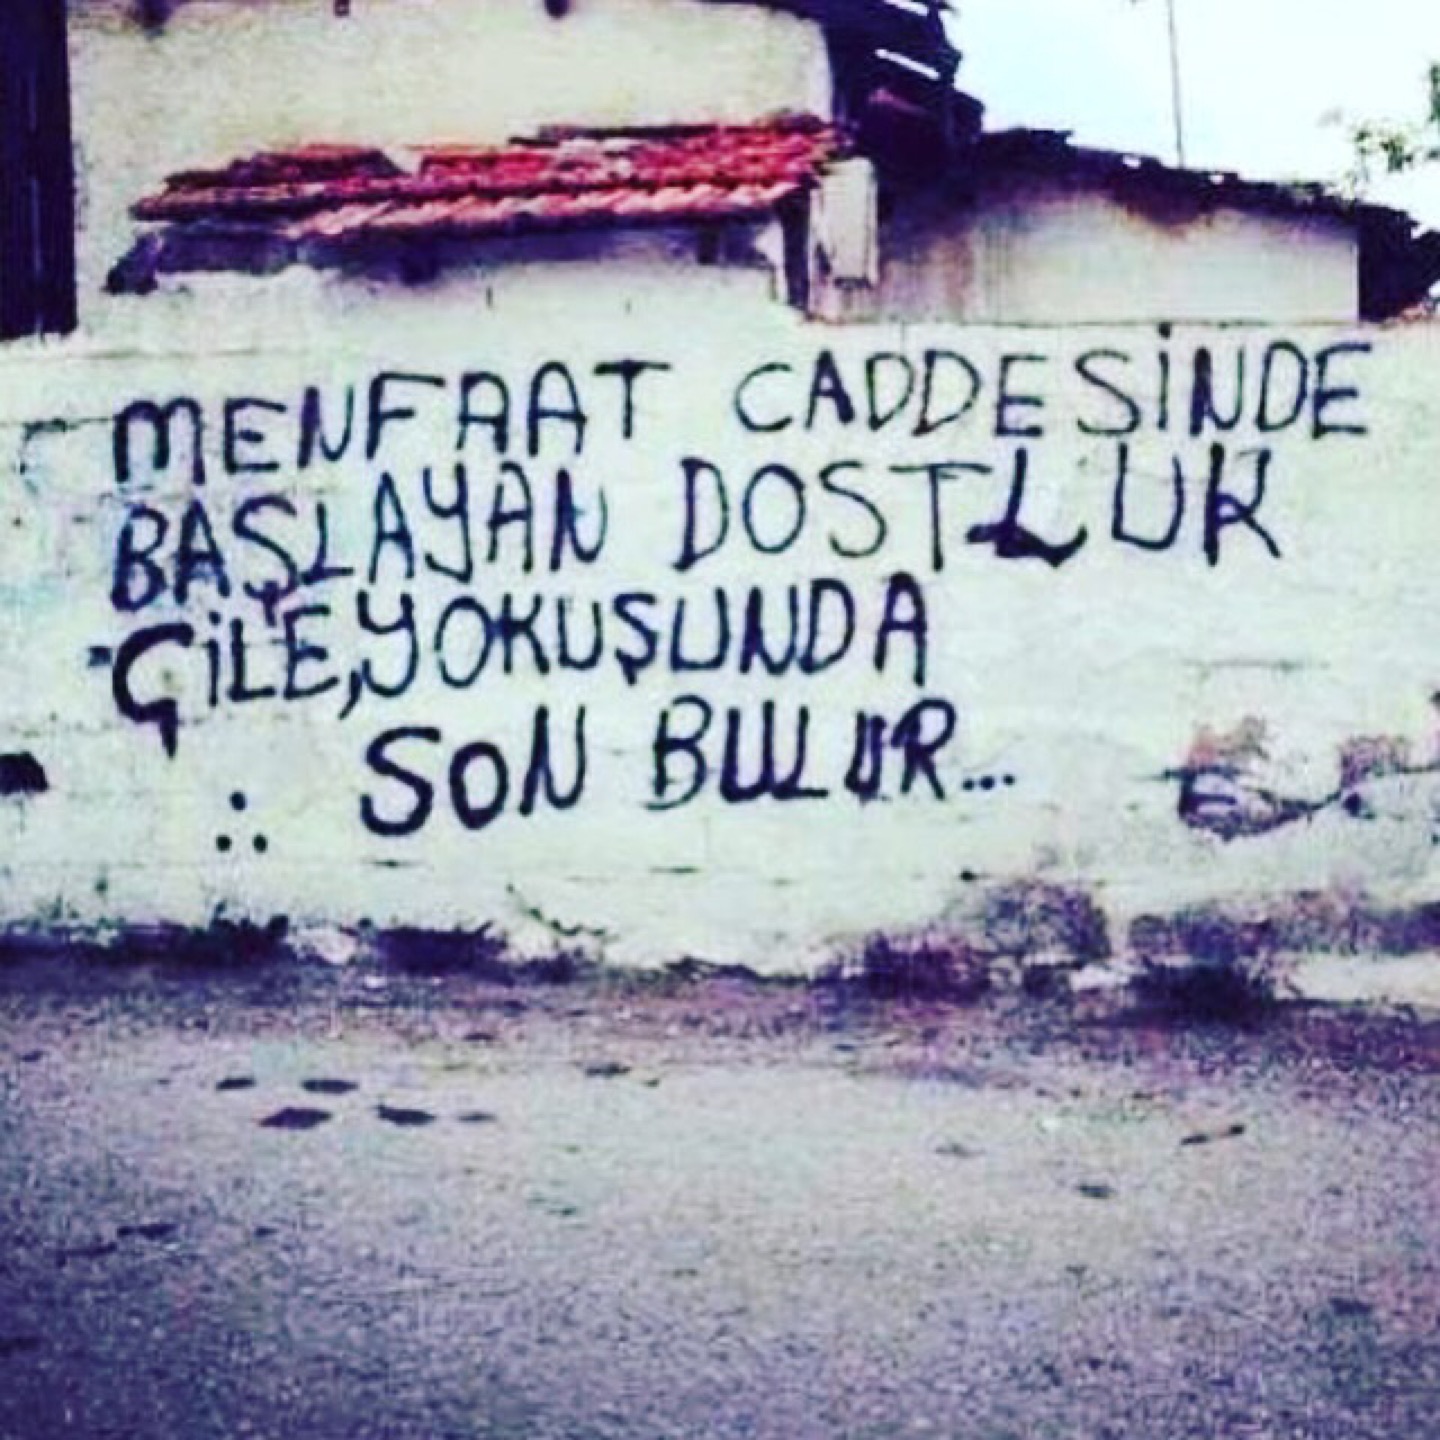 MENFAAT CADDESİNDE
BAŞLAYAN DOSTLUK
ÇİLE,YOKUŞUNDA
SON BULUR...